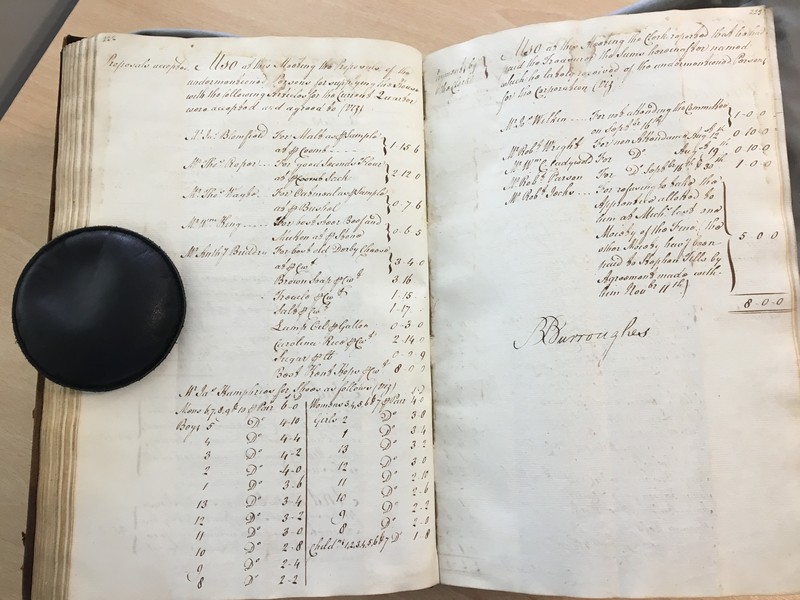 222
Proposals accepted
Also at this Meeting the Proposals of the
undermentioned Persons for supplying this House
with the following Articles for the Current Quarter
were accepted and agreed to (viz)
Mr Jno Blomfield For Malt as pr Sample
at pr Coomb 1 15 6
Mr Thos Roper For Good Seconds Flour
at pr Sack 2 12 0
Mr Thos For Oatmeal as pr Sample
at pr Bushel 0 7 6
Mr Wm King For best Beef and
Mutton at pr Stone 0 6 5
Mr For best old Derby Cheese
at pr Cwt 3 4 0
Brown Soap pr Cwt 3 16
Treacle pr Cwt 1 15
Salt pr Cwt 1 17
Lamp Oil pr Gallon 0 3 0
Carolina Rice pr Cwt 2 14 0
Sugar pr lb 0 0 9
Best Kent Hops pr Cwt 8 0 0
Mr Jas Humphries for Shoes as follows (viz)
Mens 6, 7, 8, 9 & 10 pr Pair 6-0
Boys 5 Do 4-10
4 Do 4-4
3 Do 4-2
2 Do 4-0
1 Do 3-6
13 Do 3-4
12 Do 3-2
11 Do 3-0
10 Do 2-8
9 Do 2-4
8 Do 2-2
Womens 3, 4, 5, 6 & 7 pr Pair 4-0
Girls 2 Do 3-8
1 Do 3-4
13 Do 3-2
12 Do 3-0
11 Do 2-10
10 Do 2-6
9 Do 2-2
8 Do 2-0
Childns 1, 2, 3, 4, 5, 6 & 7 Do 1-8
223
by
the Clerk
Also at this Meeting the Clerk reported that he had
paid the Treasurer the Sums hereinafter named
which he lately received of the undermentioned Persons
for the Corporation (viz)
Mr Jos For not attending the Committee
on Septr 16th 1-0-0
Mr Robt Wright For non Attendance Augt 12th 0 10-0
Mr Wm Gladgwold For Do Augt 19th 0 10-0
Mr Robt Parson For Do Septr 16th & 30th 1-0-0
Mr Robt Jocks For refusing to take the
Apprentice allotted to
him at Mich's last one
Moiety of the Fine, the
other Moiety havg been
paid to Stephen by
Agreement made with
him Novr 11th 5-0-0
8-0-0
Burroughes